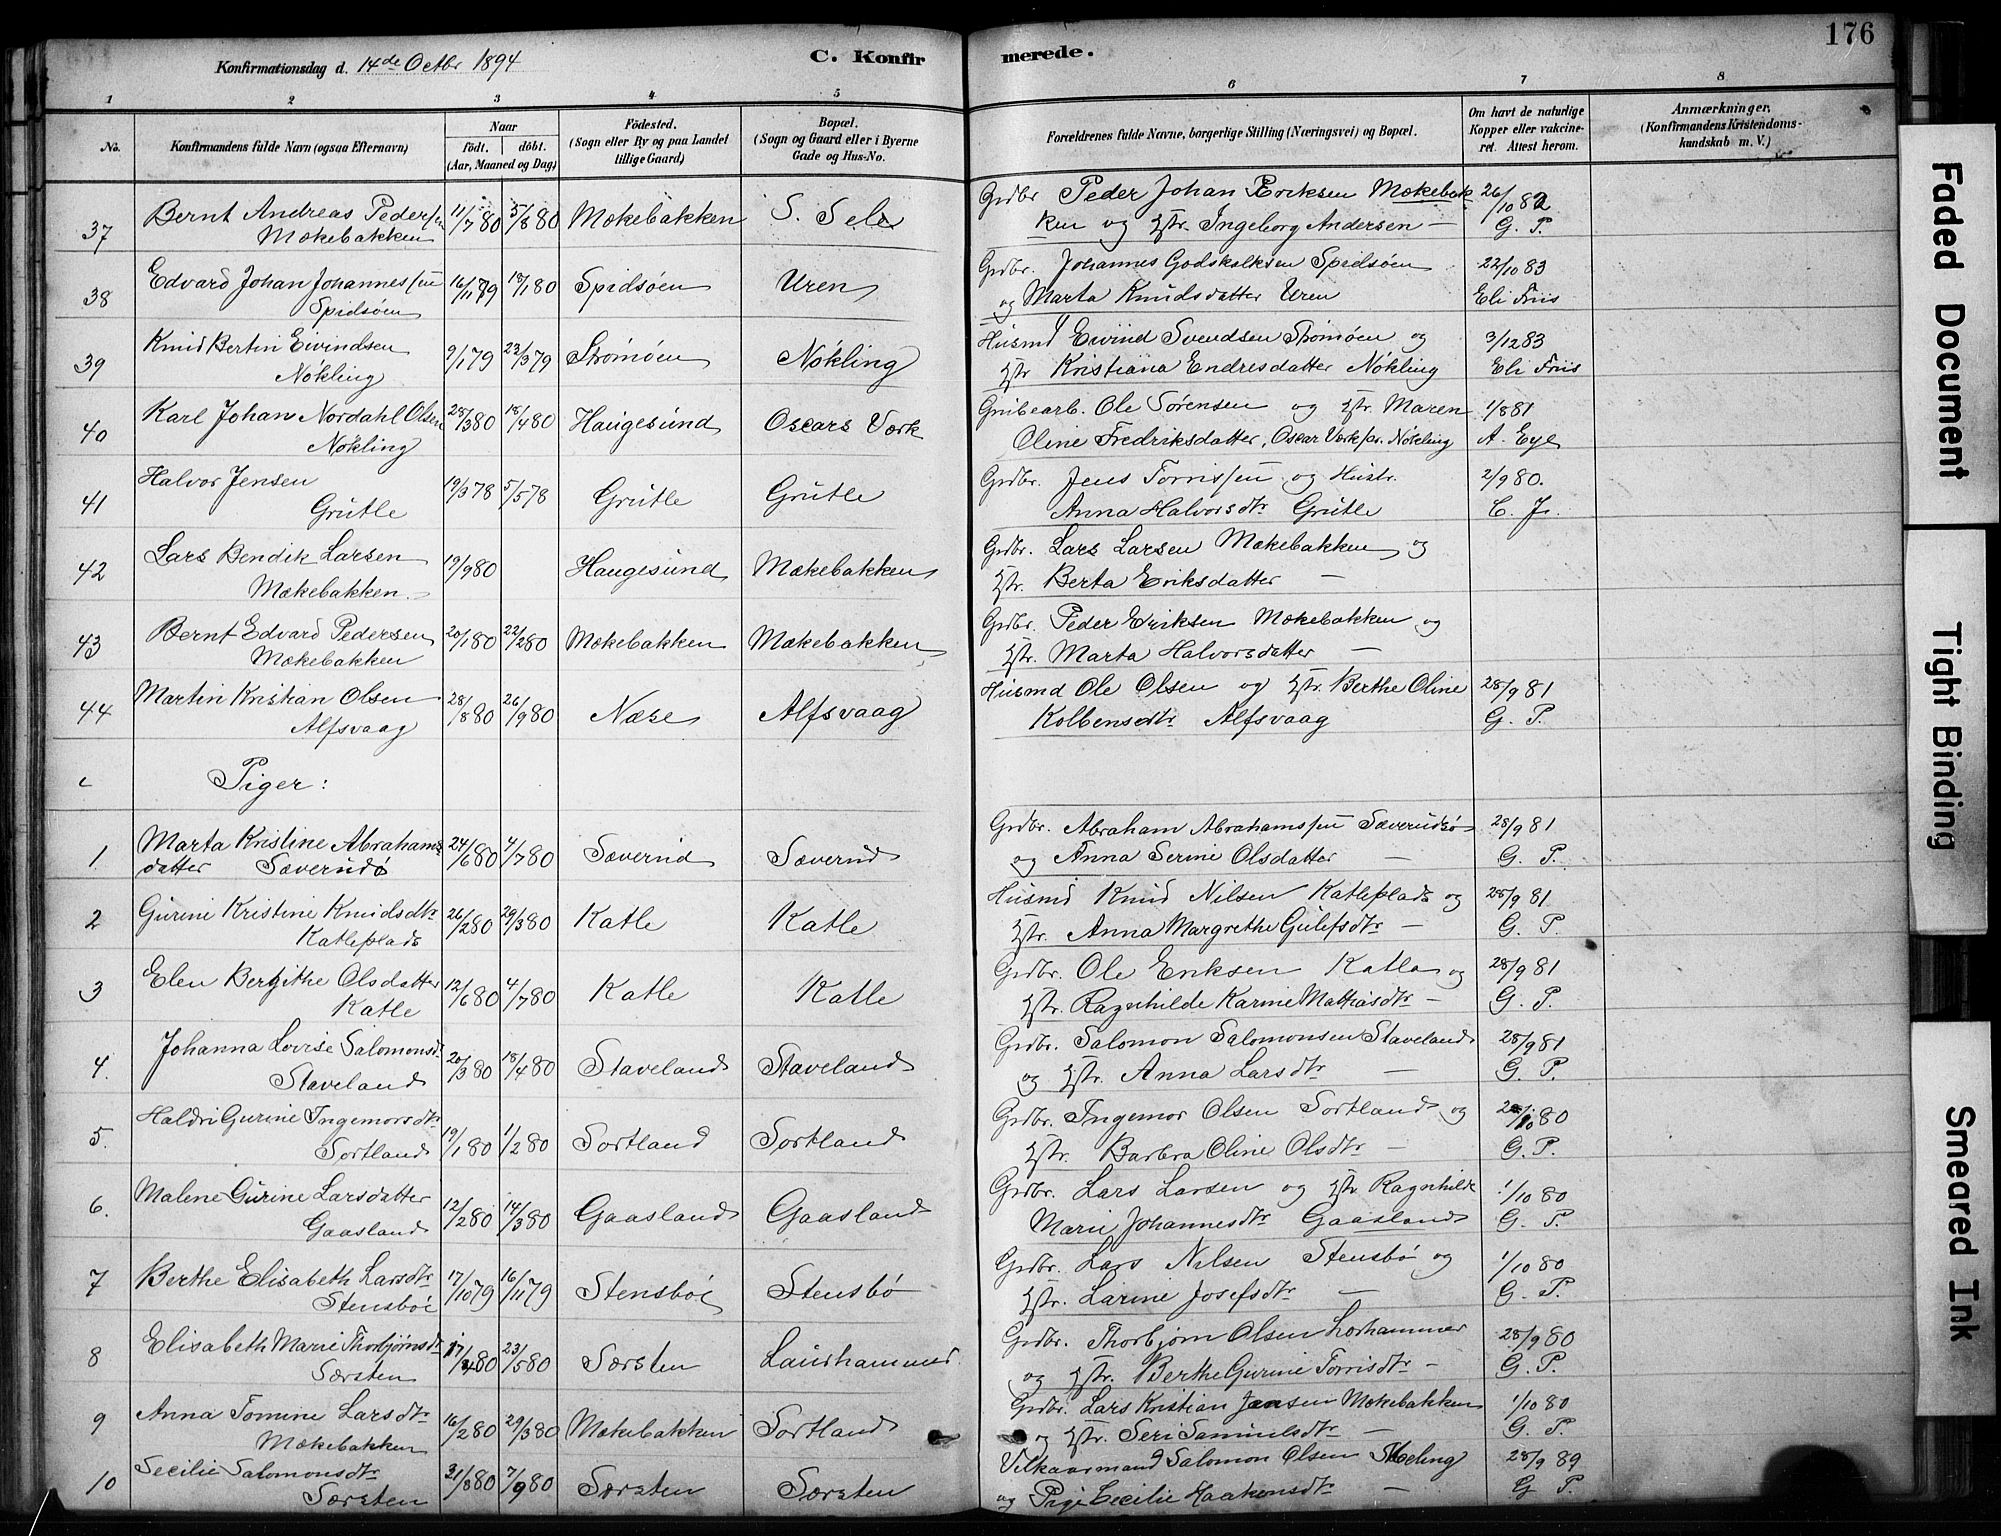 176
Konfirmationsdag d. 14de Octbr 1894 C. Konfirmerede.
1 2 3 4 5 6 7 8
No. Konfirmandens fulde Navn (ogsaa Efternavn) Naar födt. döbt. (Aar, Maaned og Dag) Födested. (Sogn eller By og paa Landet tillige Gaard) Bopæl. (Sogn og Gaard eller i Byerne Gade og Hus-No. Forældrenes fulde Navne, borgerlige Stilling (Næringsvei) og Bopæl. Om havt de naturlige Kopper eller vakcineret. Attest herom. Anmærkninger. (Konfirmandens Kristendomskundskab m. V.)
37 Bernt Andreas Pedersen 11/7 80 5/8 80 Mækebakken S. Sele Grdbr Peder Johan Eriksen Mækebak 26/10 82
Mækebakken ken og Hstr. Ingeborg Andersen — G. P.
38 Edvard Johan Johannessen 16/11 79 18/1 80 Spidsøen Uren Grdbr. Johannes Godskalksen Spidsøen 22/10 83
Spidsøen og Marta Knudsdatter Uren Eli Friis
39 Knud Bertin Eivindsen 9/1 79 23/3 79 Strømøen Nökling Husmd Eivind Svendsen Strømøen og 3/12 83
Nökling Hstr Kristiana Endresdatter Nökling Eli Friis
40 Karl Johan Nordahl Olsen 28/3 80 18/4 80 Haugesund Oscars Værk Grubearb. Ole Sörensen og Hstr. Maren 1/8 81
Nökling Oline Fredriksdatter, Oscar Værk pr. Nökling A. Eye
41 Halvor Jensen 19/3 78 5/5 78 Grutle Grutle Grdbr. Jens Torrissen og Hustr. 2/9 80.
Grutle Anna Halvorsdtr Grutle C. J.
42 Lars Bendik Larsen 19/9 80 Haugesund Mækebakken Grdbr. Lars Larsen Mækebakken og
Mækebakken. Hstr. Berta Eriksdatter —
43 Bernt Edvard Pedersen 20/1 80 22/2 80 Mækebakken Mækebakken Grdbr. Peder Eriksen Mækebakken og
Mækebakken Hstr. Marta Halvorsdatter —
44 Martin Kristian Olsen 28/8 80 26/9 80 Næse Alfsvaag Husmd Ole Olsen og Hstr. Berthe Oline 28/9 81
Alfsvaag Kolbensdtr Alfsvaag G. P.
Piger:
1 Marta Kristine Abrahams 24/6 80 4/7 80 Sæverud Sæverud Grdbr. Abraham Abrahamssen Sæverudsö 28/9 81
datter Sæverudö og Anna Serine Olsdatter — G. P.
2 Gurine Kristine Knudsdtr 26/2 80 29/3 80 Katle Katle Husmd Knud Nilsen Katleplads og 28/9 81
Katleplads Hstr. Anna Margrethe Gulefsdtr — G. P.
3 Elen Bergithe Olsdatter 12/6 80 4/7 80 Katle Katle Grdbr. Ole Eriksen Katla og 28/9 81
Katle Hstr. Ragnhilde Karine Mathiasdtr — G. P.
4. Johanna Lovise Salomonsdt 20/3 80 18/4 80 Staveland Staveland Grdbr. Salomon Salomonsen Staveland 28/9 81
Staveland og Hstr. Anna Larsdtr — G. P.
5. Haldri Gurine Ingemorsdtr 19/1 80 1/2 80 Sortland Sortland Grdbr. Ingemor Olsen Sortland og /10 80
Sortland Hstr. Barbra Oline Olsdtr — G. P.
6. Malene Gurine Larsdatter 12/2 80 14/3 80 Gaasland Gaasland Grdbr. Lars Larsen og Hstr Ragnhilde 1/10 80
Gaasland Marie Johannesdtr Gaasland G. P.
7 Berthe Elisabeth Larsdtr 17/10 79 16/11 79 Stensböe Stensbö Grdbr. Lars Nilsen Stensbö og 1/10 80
Stensböe Hstr. Larine Josefsdtr — G. P.
8 Elisabeth Marie Thorbjörnsdtr 17/4 80 23/5 80 Særsten Laurhammer Grdbr. Thorbjörn Olsen Lorhammer 28/9 80
Særsten og Hstr. Berthe Gurine Torrisdtr — G. P.
9 Anna Tomine Larsdtr 16/2 80 29/3 80 Mækebakken Sortland Grdbr. Lars Kristian Jensen Mækebakken 1/10 80
Mækebakken og Hstr. Seri Samuelsdtr — G. P.
10 Secilie Salomonsdtr 31/8 80 7/9 80 Særsten Særsten Vilkaarmand Salomon Olsen Meling 28/9 89
Særsten og Pige Cecilie Haakonsdtr — G P.
Faded Document
Tight Binding
Smeared Ink